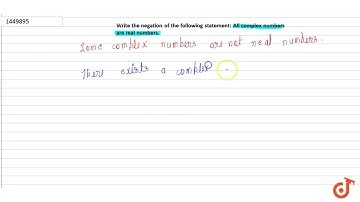 1449895
Write the negation of the following statement: All complex numbers
are real numbers.
Some complex numbers are not real numbers.
There exists a complex
doubtnut